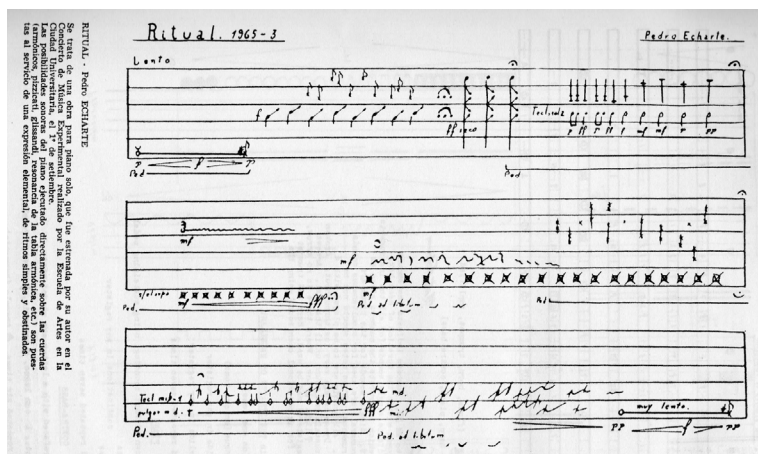 RITUAL - Pedro ECHARTE
Se trata de una obra para piano solo, que fue estrenada por su autor en el
Concierto de Música Experimental realizado por la Escuela de Artes en la
Ciudad Universitaria, el 1º de setiembre.
Las posibilidades sonoras del piano ejecutado directamente sobre las cuerdas
(armónicos, pizzicati, glissandi, resonancia de la tabla armónica, etc.) son pues-
tas al servicio de una expresión elemental, de ritmos simples y obstinados.
Ritual. 1965-3
Pedro Echarte.
Lento
f
ff seco
p ff f ff f mf mf p pp
p f p
Ped.
Ped.
mf
mf
mf fff
mf
Ped.
Ped. ad libitum
Ped.
m.d.
fff
muy lento.
pp f pp
Ped.
Ped. ad libitum